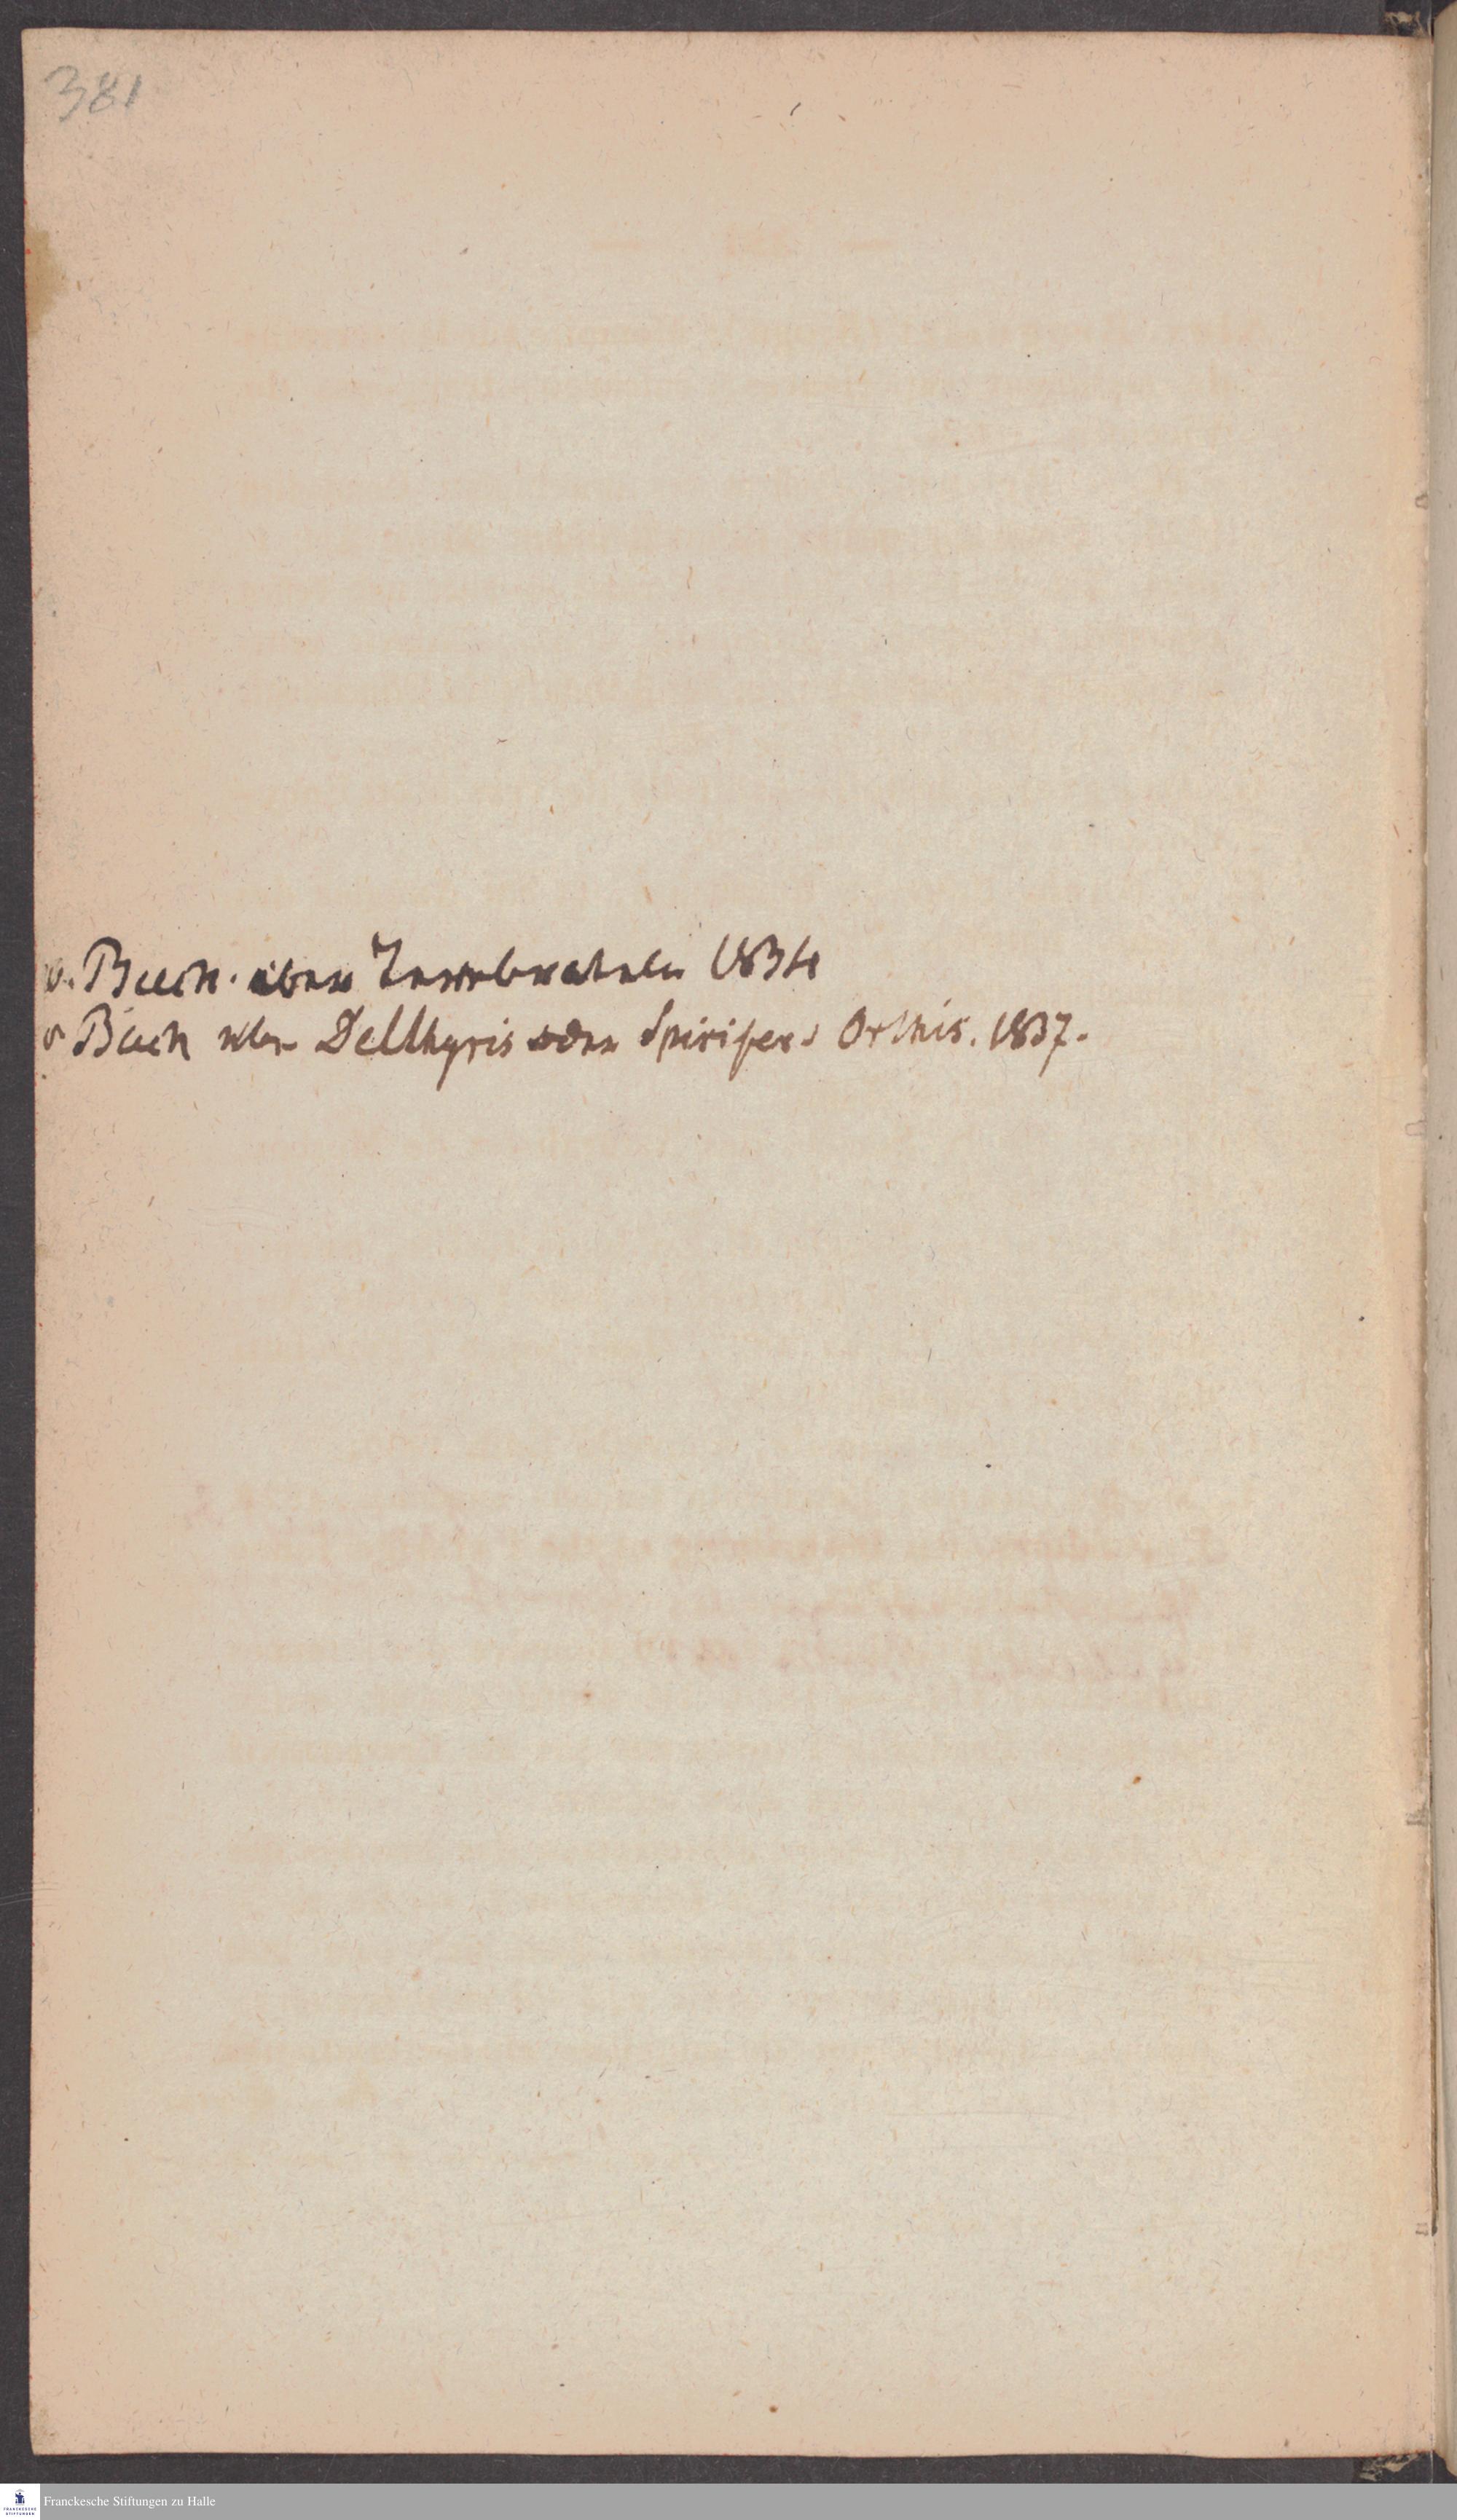 381
v. Buch. über Terebrateln 1834
v Buch über Delthyris oder Spirifer u Orthis. 1837.
Franckesche Stiftungen zu Halle